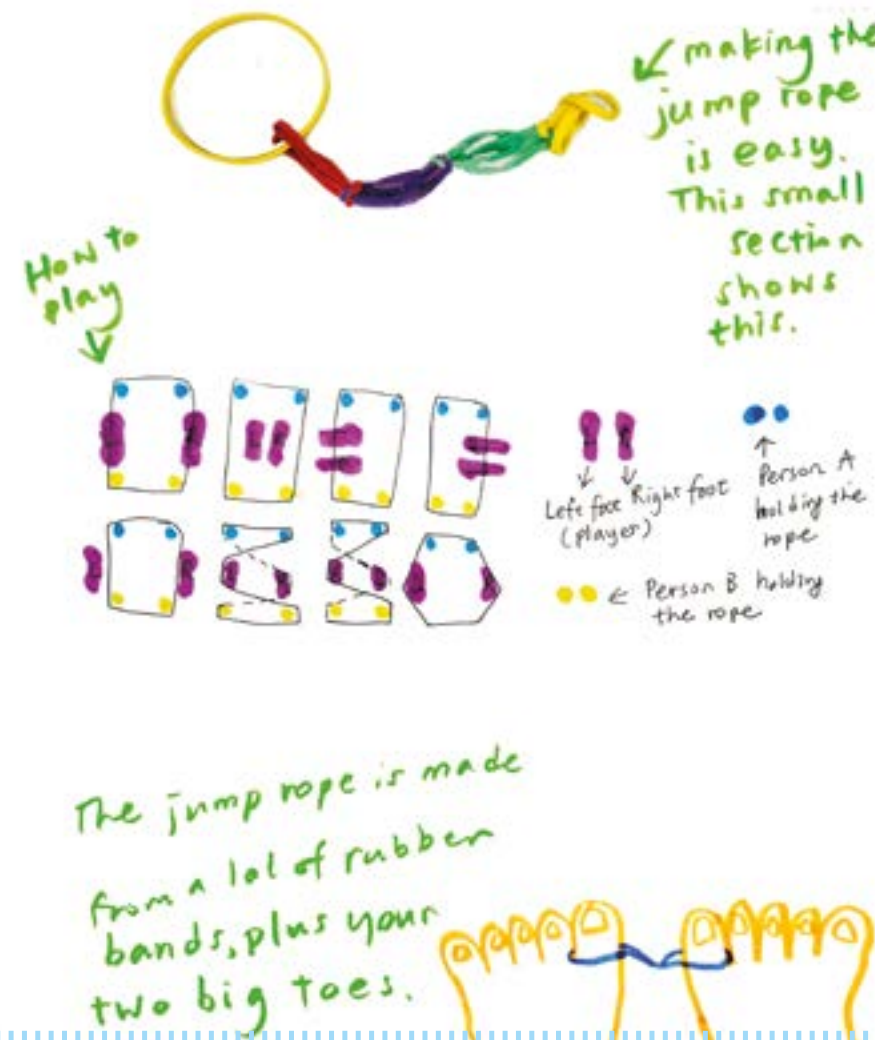 making the
jump rope
is easy.
This small
section
shows
this.
How to
play
Left foot Right foot
(player)
Person A
holding the
rope
Person B holding
the rope
The jump rope is made
from a lot of rubber
bands, plus your
two big toes.